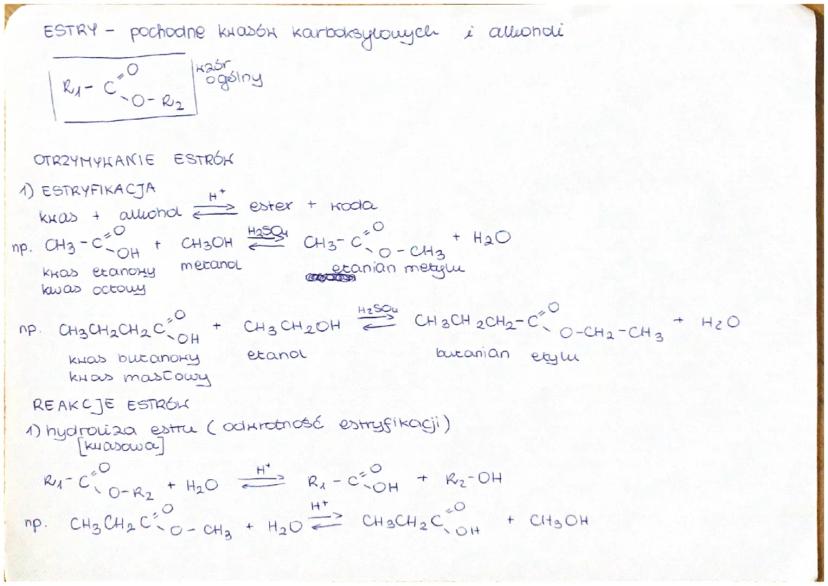 ESTRY - pochodne kwasów karboksylowych i alkoholi
R1 - C =O - O - R2 wzór ogólny
OTRZYMYWANIE ESTRÓW
1) ESTRYFIKACJA
kwas + alkohol H+ ⇌ ester + woda
np. CH3 - C =O - OH + CH3OH H2SO4 ⇌ CH3 - C =O - O - CH3 + H2O
kwas etanowy metanol etanian metylu
kwas octowy
np. CH3CH2CH2C =O - OH + CH3CH2OH H2SO4 ⇌ CH3CH2CH2 - C =O - O-CH2-CH3 + H2O
kwas butanowy etanol butanian etylu
kwas masłowy
REAKCJE ESTRÓW
1) hydroliza estru (odwrotność estryfikacji)
[kwasowa]
R1 - C =O - O-R2 + H2O H+ ⇌ R1 - C =O - OH + R2-OH
np. CH3CH2C =O - O - CH3 + H2O H+ ⇌ CH3CH2C =O - OH + CH3OH